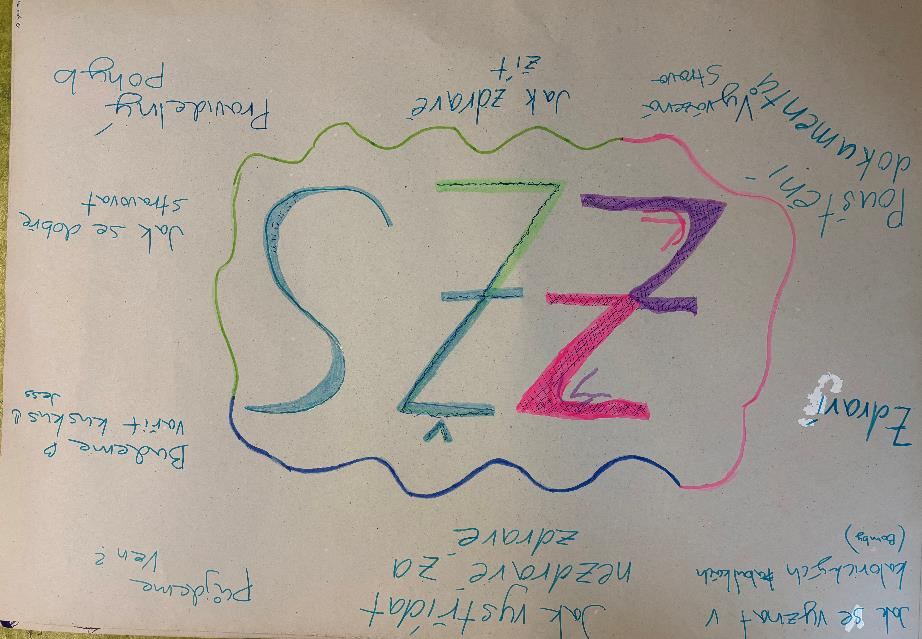 Jak se vyznat v
kalorických tabulkách
(Bomby)
Jak vystřídat
nezdravé za
zdravé
půjdeme
ven?
Zdraví
ZŽS
Budeme
vařit kuskus?
Jess
Pouštění
dokumentů
Jak se dobře
stravovat
Vyvážená
strava
Jak zdravě
žít
Pravidelný
pohyb